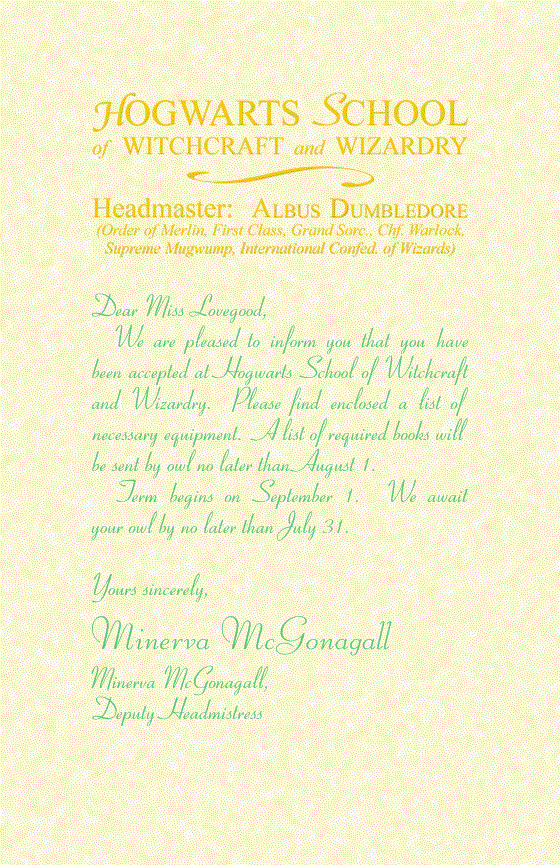 HOGWARTS SCHOOL
of WITCHCRAFT and WIZARDRY
Headmaster: ALBUS DUMBLEDORE
(Order of Merlin, First Class, Grand Sorc., Chf. Warlock,
Supreme Mugwump, International Confed. of Wizards)
Dear Miss Lovegood,
We are pleased to inform you that you have
been accepted at Hogwarts School of Witchcraft
and Wizardry. Please find enclosed a list of
necessary equipment. A list of required books will
be sent by owl no later than August 1.
Term begins on September 1. We await
your owl by no later than July 31.
Yours sincerely,
Minerva McGonagall
Minerva McGonagall,
Deputy Headmistress